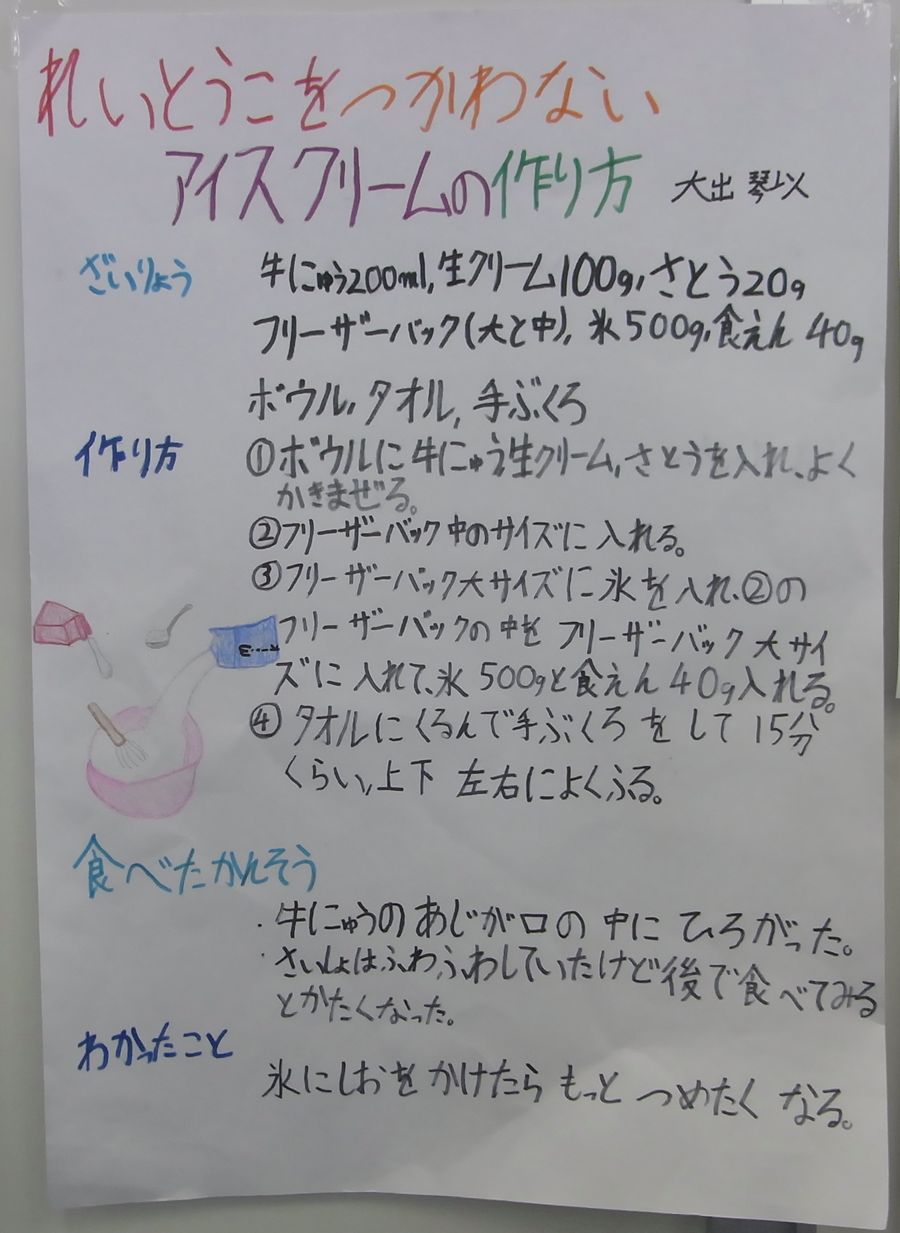 れいとうこをつかわない
アイスクリームの作り方 大出 琴以
ざいりょう 牛にゅう200ml,生クリーム100g,さとう20g
フリーザーバック(大と中), 氷500g,食えん40g
ボウル,タオル,手ぶくろ
作り方 ①ボウルに牛にゅう生クリーム,さとうを入れ、よく
かきまぜる。
②フリーザーバック中のサイズに入れる。
③フリーザーバック大サイズに氷を入れ、②の
フリーザーバックの中をフリーザーバック大サイ
ズに入れて、氷500gと食えん40g入れる。
④タオルにくるんで手ぶくろをして15分
くらい,上下左右によくふる。
食べたかんそう
・牛にゅうのあじが口の中にひろがった。
・さいしょはふわふわしていたけど後で食べてみる
とかたくなった。
わかったこと
氷にしおをかけたらもっとつめたくなる。